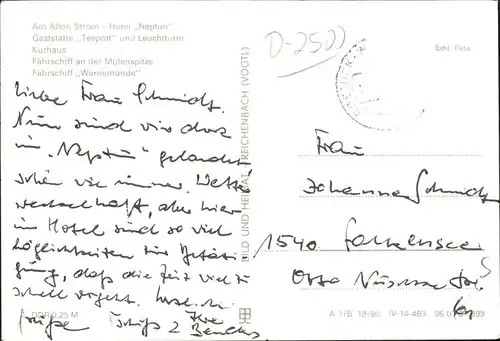 Am Alten Strom – Hotel „Neptun"
Gaststätte „Teepott" und Leuchtturm
Kurhaus
Fährschiff an der Molenspitze
Fährschiff „Warnemünde"
D-2500
Echt Foto
BILD UND HEIMAT REICHENBACH (VOGTL)
Liebe Frau Schmidt.
Nun sind wir doch
im „Neptun" gelandet
schön wie immer. Wetter
wechselhaft, aber hier
im Hotel sind so viel
Möglichkeiten für Betäti
gung, daß die Zeit viel zu
schnell vergeht. Herzliche
Grüße Ihre
Frau
Johanna Schmidt
1540 Falkensee
Otto Str.
DDR 0,25 M
A 1/B 18/80 IV-14-483 06 01